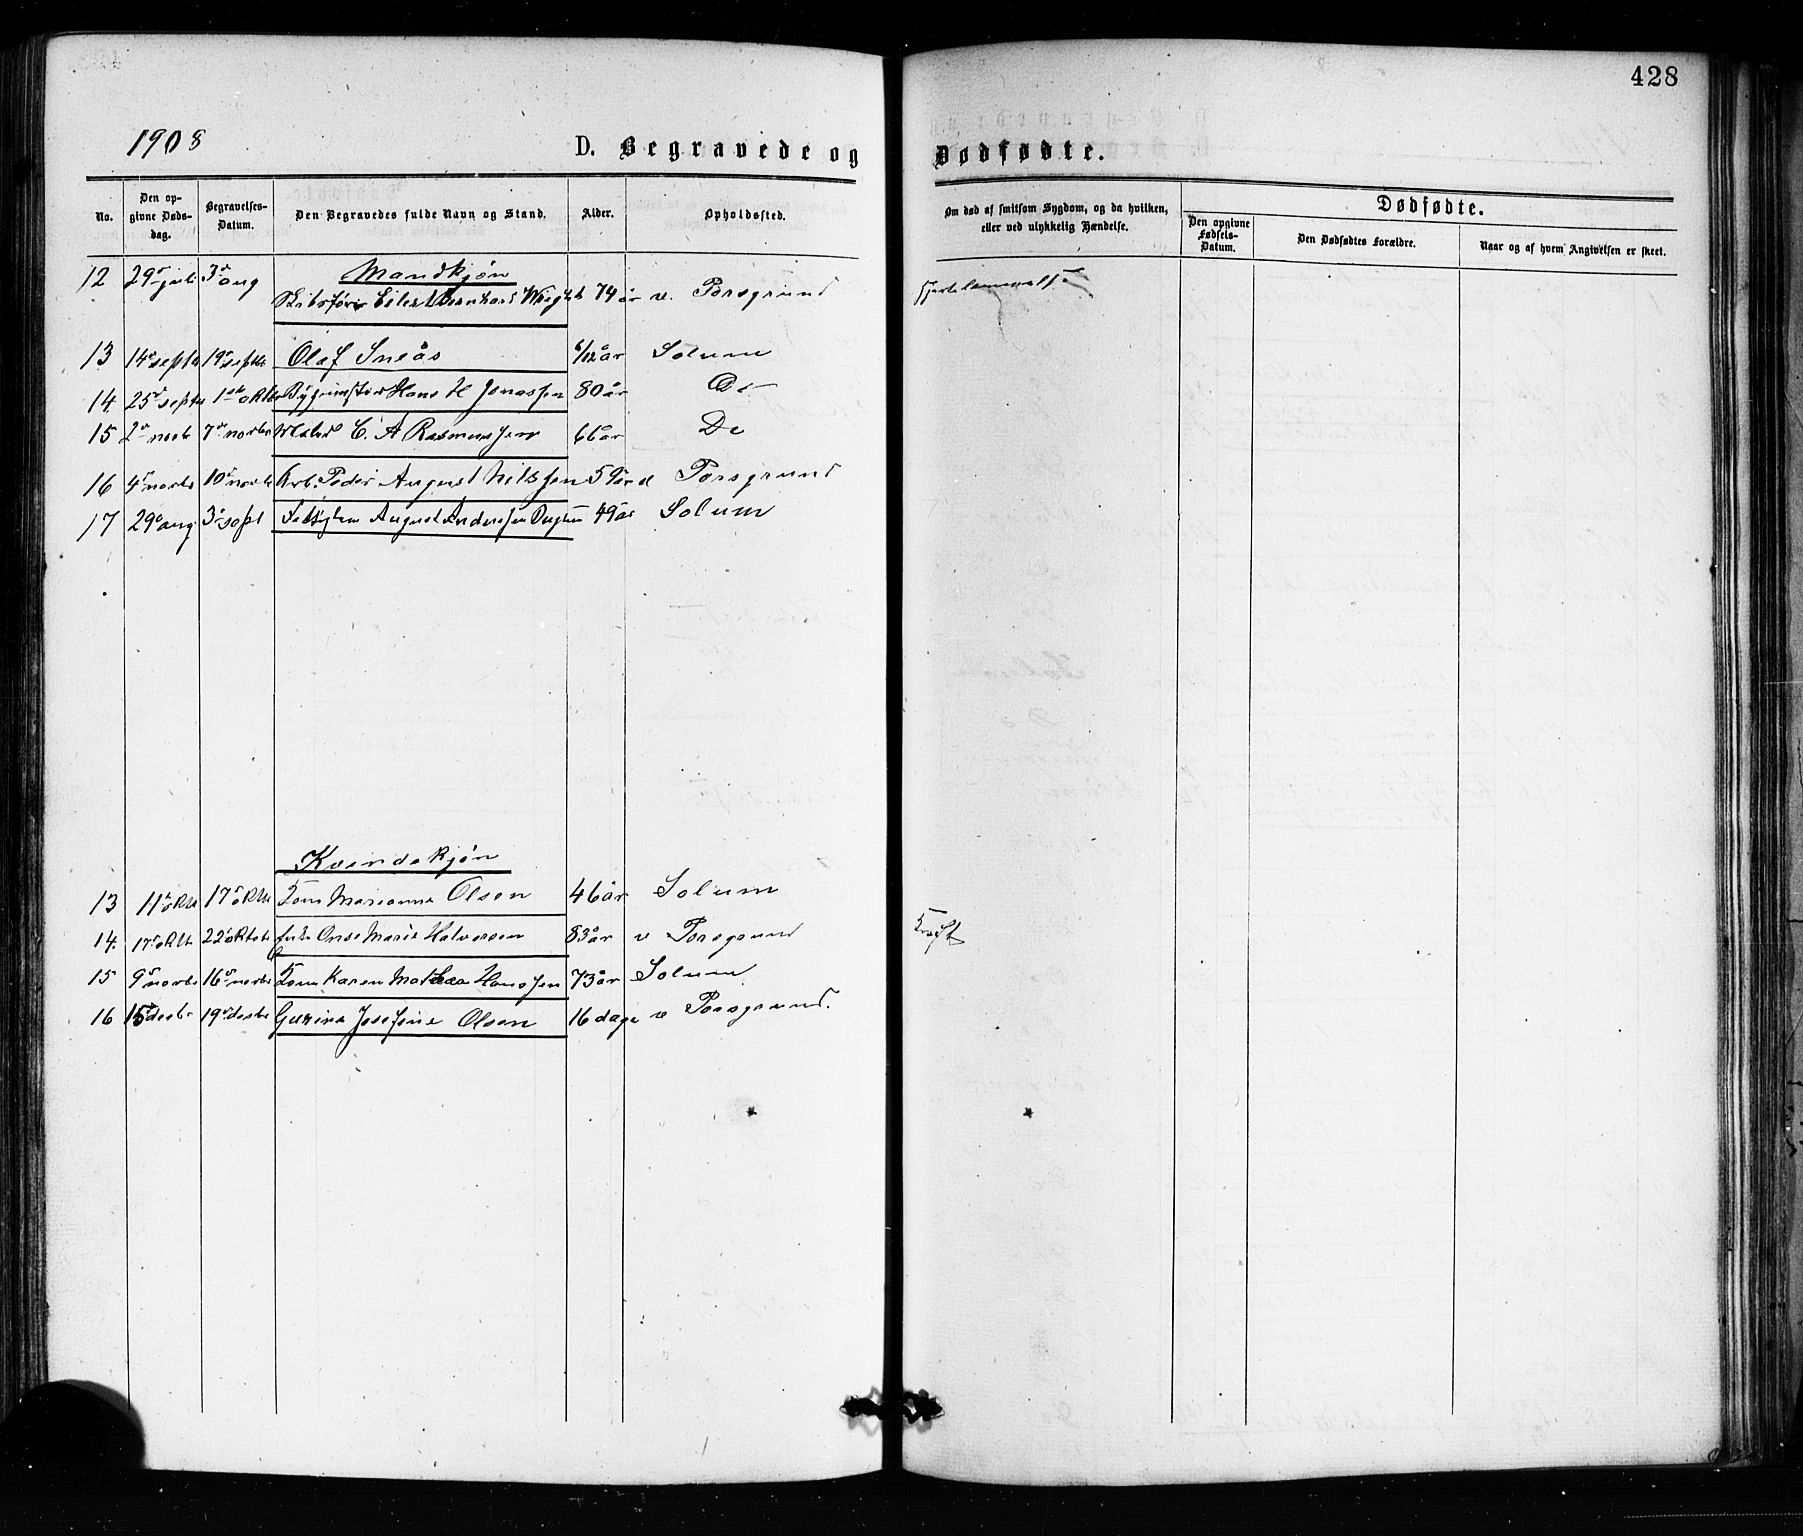 428
1908
D. Begravede og Dødfødte.
No. Den opgivne Dødsdag. Begravelses-Datum. Den Begravedes fulde Navn og Stand. Alder. Opholdssted. Om død af smitsom Sygdom, og da hvilken, eller ved ulykkelig Hændelse. Dødfødte.
Den opgivne Fødsels-Datum. Den Dødfødtes Forældre. Naar og af hvem Angivelsen er skeet.
Mandkjøn
12 29 juli 3 aug Skibsfører Eilert Bernhard Wright 74 år v. Porsgrund
13 14 septb 19 septb Olaf Sneås 6/12 år Solum
14 25 septb 1 oktb Hans H Jonassen 80 år Do
15 2 novb 7 novbr C. A Rasmussen 66 år Do
16 4 novbr 10 novbr Arb. Peder August Nilssen 59 år v Porsgrund
17 29 aug 3 sept August Anderssen 49 år Solum
Kvindekjøn
13 11 oktb 17 oktb Kone Marianne Olsen 46 år Solum
14. 17 oktb 22 oktob Enke Anne Marie Halvorsen 83 år v Porsgrund Kræft
15 9 novbr 16 novbr Kone Karen Mathea Hanssen 73 år Solum
16 15 desbr 19 desbr Gurine Josefine Olsen 16 dage v Porsgrund.